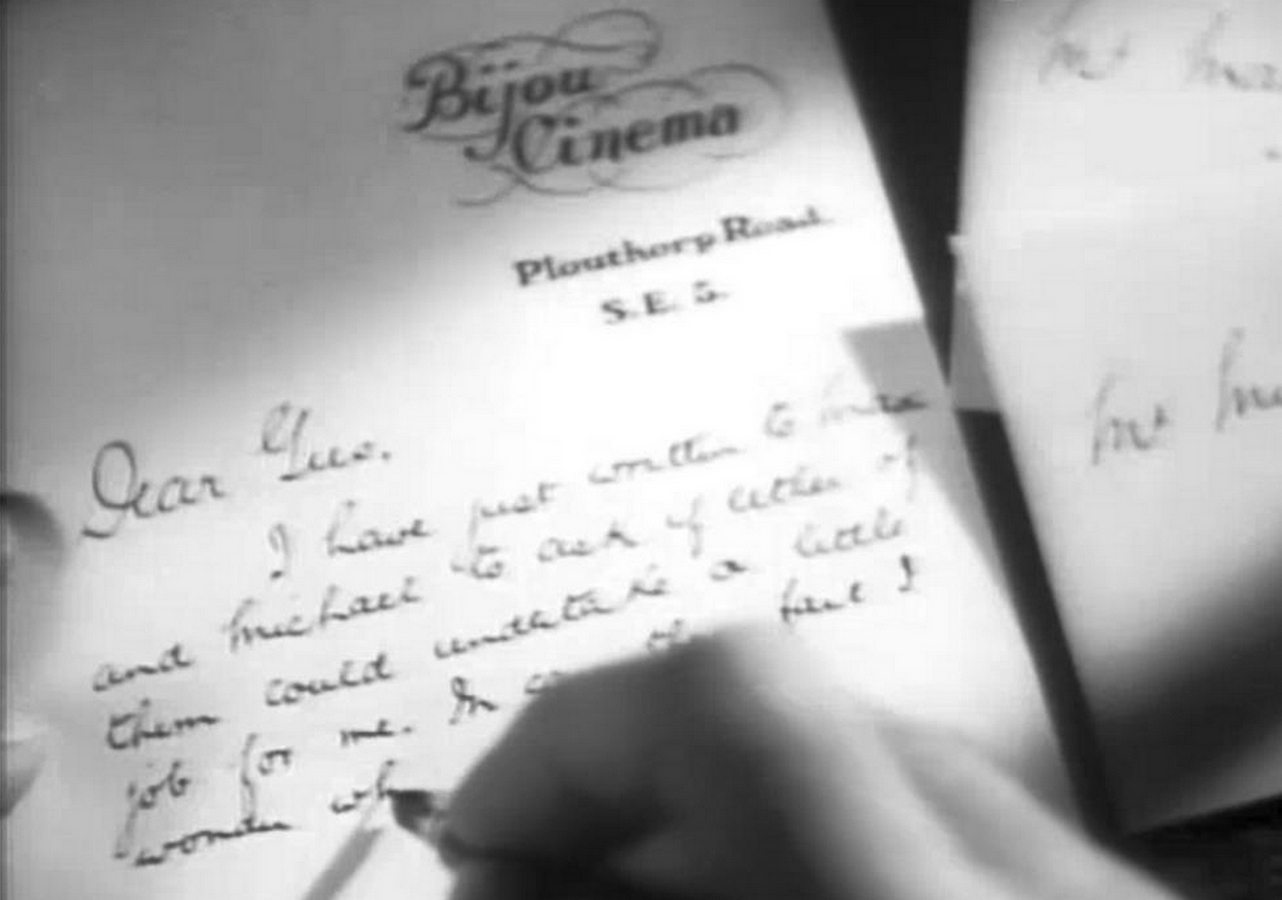 Bijou
Cinema
Plouthorp Road
S.E. 5.
Dear Gus.
I have just written to
and Michael to ask if either of
them could undertake a little
job for me. In I
wh
Mr
Mr